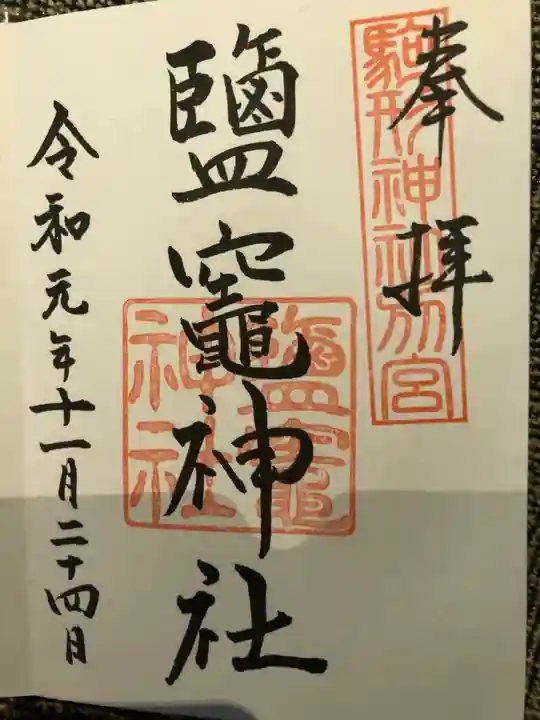 奉拝
駒形神社別宮
鹽竈神社
鹽竈
神社
令和元年十一月二十四日